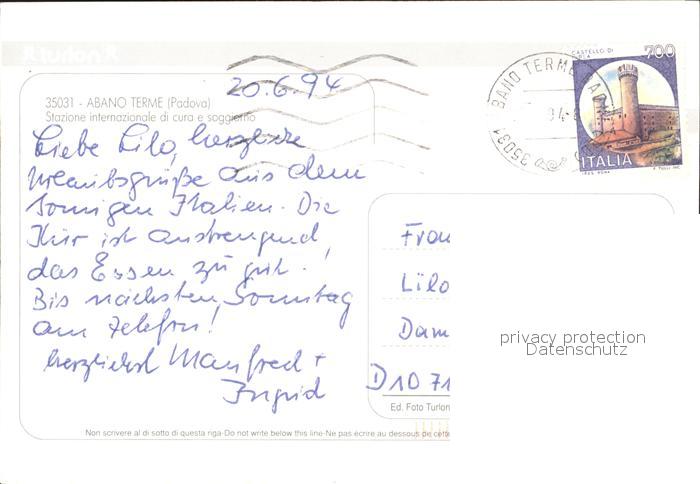 turlon
20.6.94
CASTELLO DI
700
BANO TERME
35031
94
ITALIA
35031 - ABANO TERME (Padova)
Stazione internazionale di cura e soggiorno
Liebe Lilo, herzliche
Urlaubsgrüße aus dem
sonnigen Italien. Die
Kur ist anstrengend,
das Essen zu gut.!
Bis nächsten Sonntag
am Telefon!
herzlichst Manfred +
Ingrid
Frau
Lilo
Dam
D 10 71
Ed. Foto Turlon
privacy protection
Datenschutz
Non scrivere al di sotto di questa riga-Do not write below this line-Ne pas écrire au dessous de cette